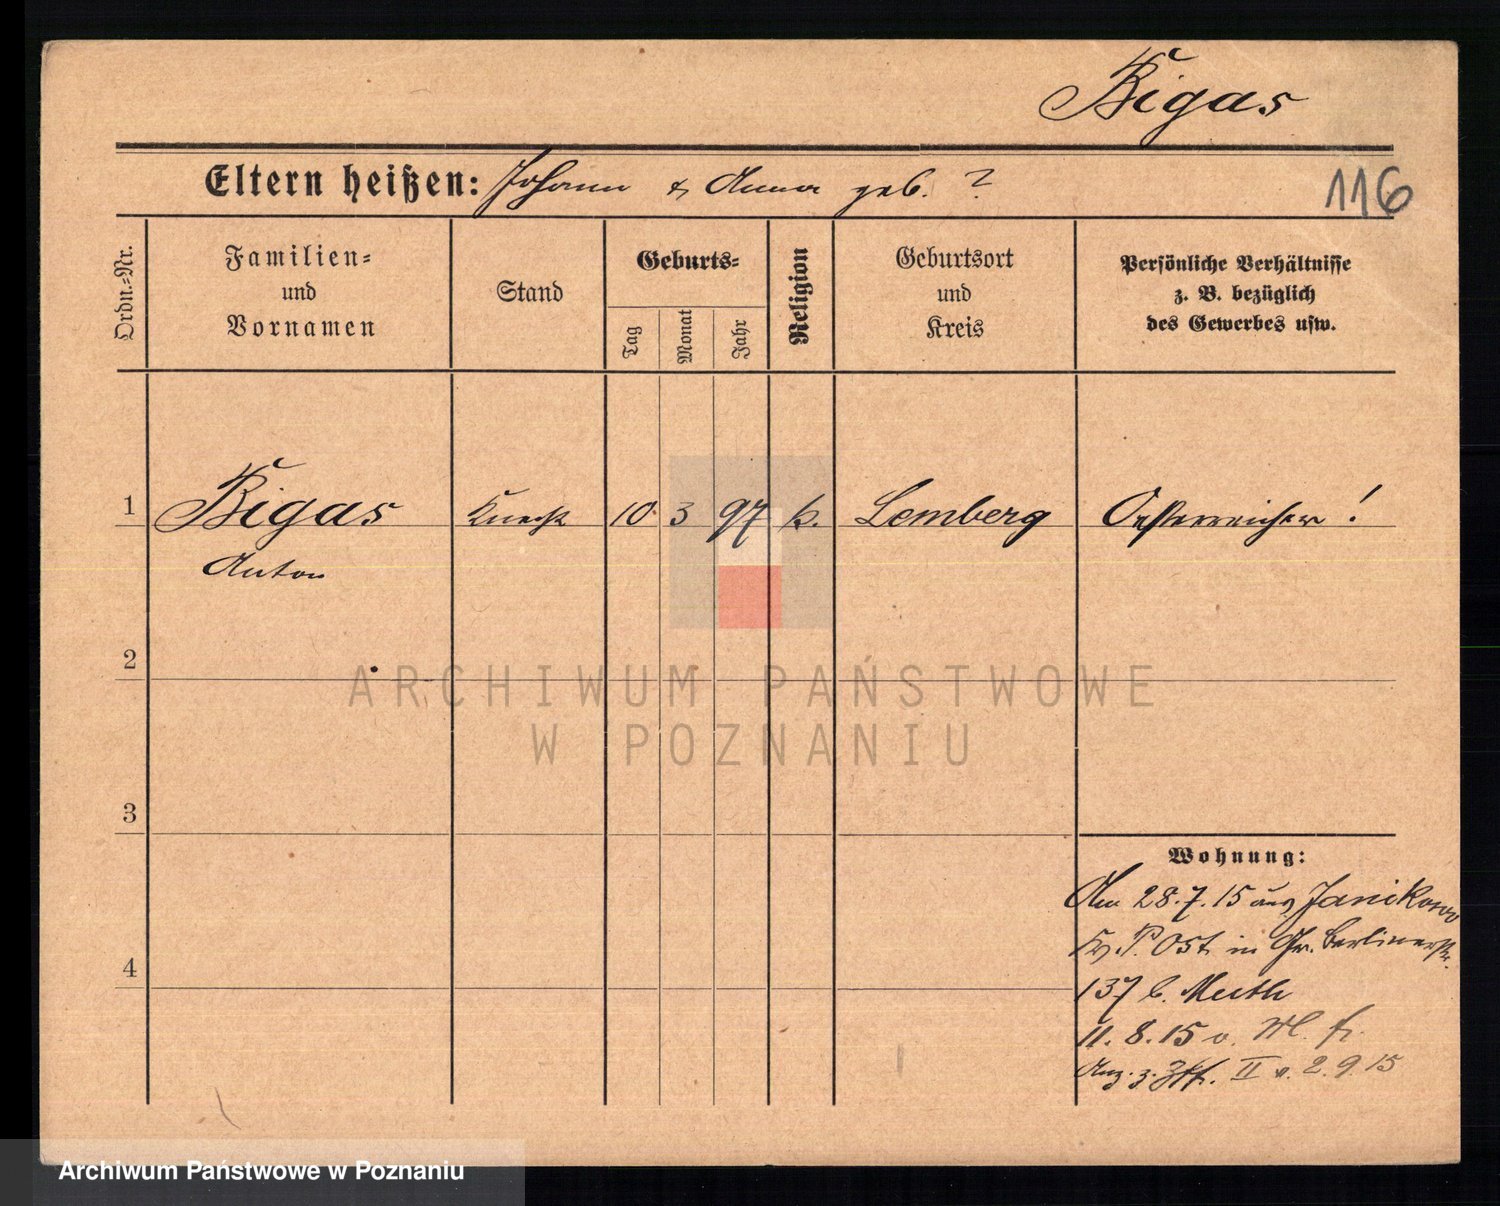 Bigas
Eltern heißen: Johann & Anna geb. ?
116
Ordn.-Nr.
Familien-
und
Vornamen
Stand
Geburts-
Tag
Monat
Jahr
Religion
Geburtsort
und
Kreis
Persönliche Verhältnisse
z. B. bezüglich
des Gewerbes usw.
1 Bigas Knecht 10 3 97 k. Lemberg Oesterreicher!
Anton
2
ARCHIWUM PAŃSTWOWE
W POZNANIU
3
Wohnung:
Am 28.7.15 aus Janikowo
P. Ost in Gr. Berlinerstr.
4
137 b. Muth
11. 8. 15 v.
Anz. z. II v. 2. 9. 15
Archiwum Państwowe w Poznaniu